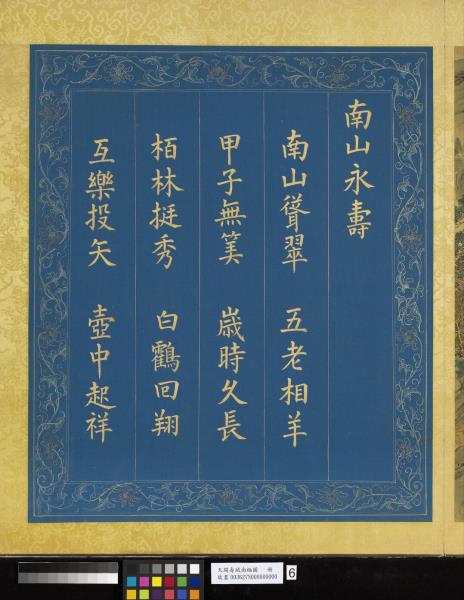 南山永壽
南山聳翠 五老相羊
甲子無筭 歲時久長
栢林挺秀 白鶴回翔
互樂投矢 壺中起祥
故畫 003627N000000000
6